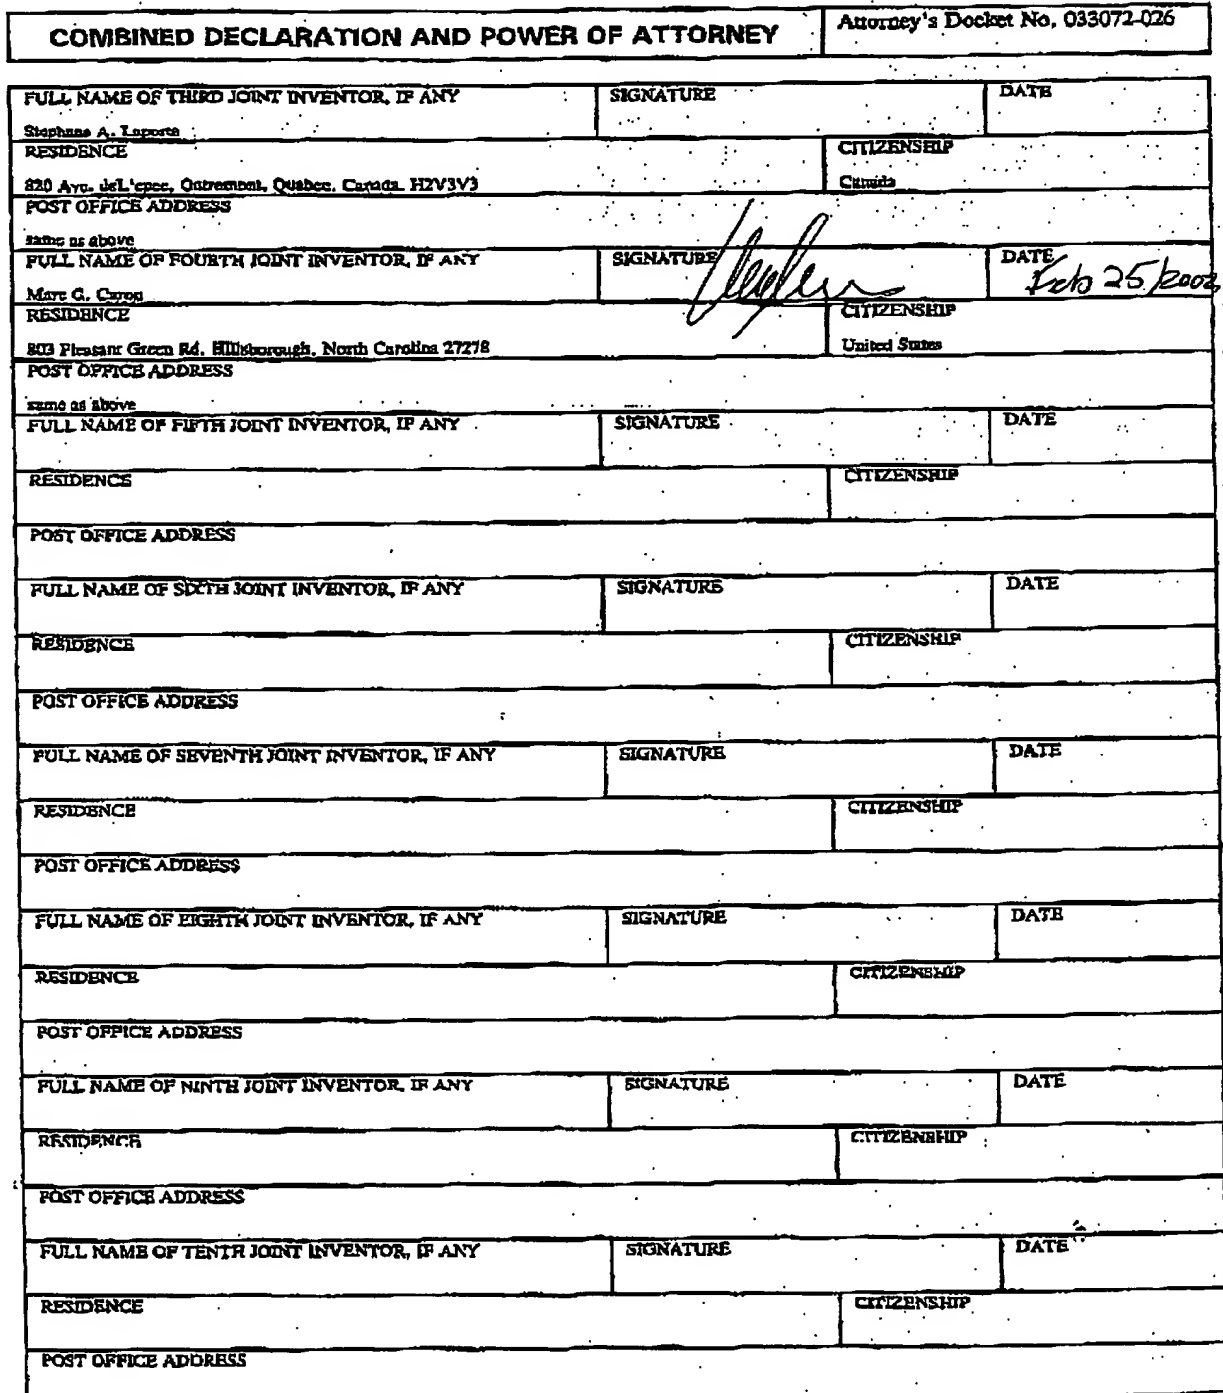 COMBINED DECLARATION AND POWER OF ATTORNEY
Attorney's Docket No. 033072-026
FULL NAME OF THIRD JOINT INVENTOR, IF ANY SIGNATURE DATE
Stephane A. Laporte
RESIDENCE CITIZENSHIP
820 Ave. deL'epee, Outremont, Quebec, Canada H2V3V3 Canada
POST OFFICE ADDRESS
same as above
FULL NAME OF FOURTH JOINT INVENTOR, IF ANY SIGNATURE DATE
Marc G. Caron Feb 25/2002
RESIDENCE CITIZENSHIP
803 Pleasant Green Rd. Hillsborough, North Carolina 27278 United States
POST OFFICE ADDRESS
same as above
FULL NAME OF FIFTH JOINT INVENTOR, IF ANY SIGNATURE DATE
RESIDENCE CITIZENSHIP
POST OFFICE ADDRESS
FULL NAME OF SIXTH JOINT INVENTOR, IF ANY SIGNATURE DATE
RESIDENCE CITIZENSHIP
POST OFFICE ADDRESS
FULL NAME OF SEVENTH JOINT INVENTOR, IF ANY SIGNATURE DATE
RESIDENCE CITIZENSHIP
POST OFFICE ADDRESS
FULL NAME OF EIGHTH JOINT INVENTOR, IF ANY SIGNATURE DATE
RESIDENCE CITIZENSHIP
POST OFFICE ADDRESS
FULL NAME OF NINTH JOINT INVENTOR, IF ANY SIGNATURE DATE
RESIDENCE CITIZENSHIP
POST OFFICE ADDRESS
FULL NAME OF TENTH JOINT INVENTOR, IF ANY SIGNATURE DATE
RESIDENCE CITIZENSHIP
POST OFFICE ADDRESS